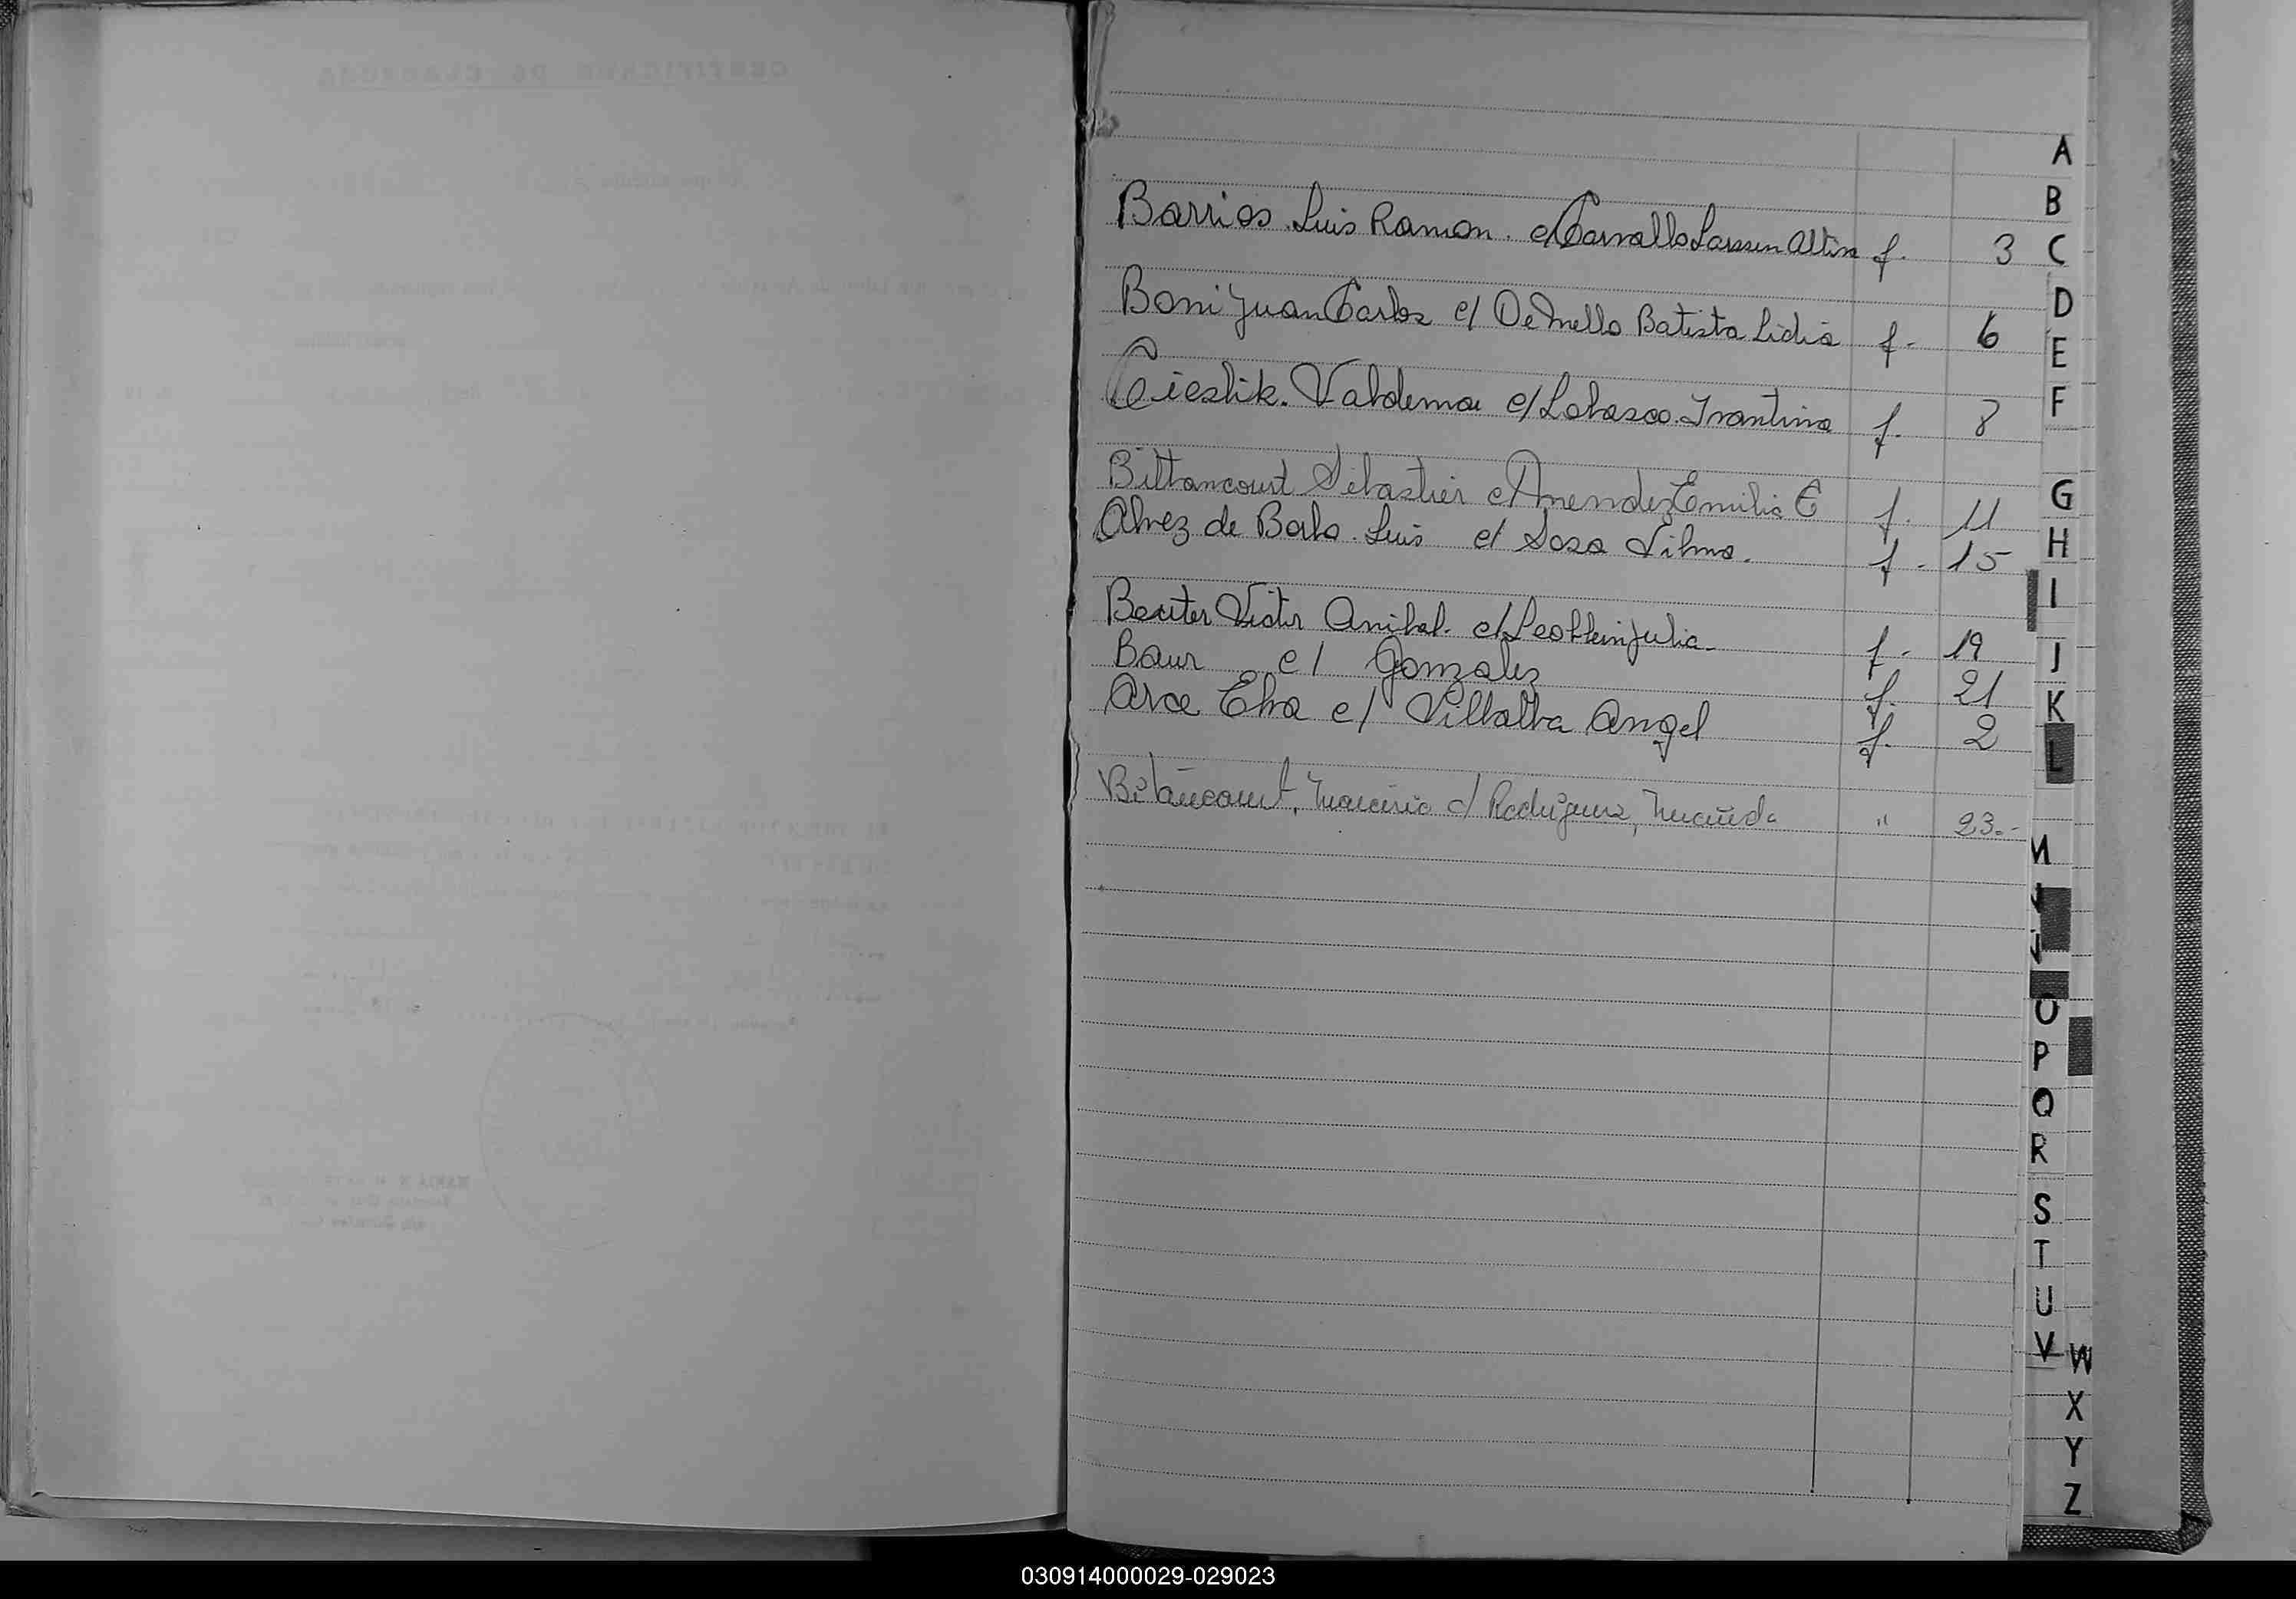 Barrios. Luis Ramon. c/ Carvallo Larssen Altina f. 3
Boni Juan Carlos c/ De Mello Batista Lidia f. 6
Cieslik. Valdemar c/ Lobasco. Irantina f. 8
Bittancourt Sebastian c/ Amendez Emilia E f. 11
Alvez de Borba. Luis c/ Sosa Vilma. f. 15
Beuter Victor Anibal. c/ Julia f. 19
Baur c/ Gonzalez f. 21
Arce Elva c/ Villalba Angel f. 2
Betancourt, c/ Rodriguez, " 23.-
A
B
C
D
E
F
G
H
I
J
K
L
M
O
P
Q
R
S
T
U
V W
X
Y
Z
030914000029-029023